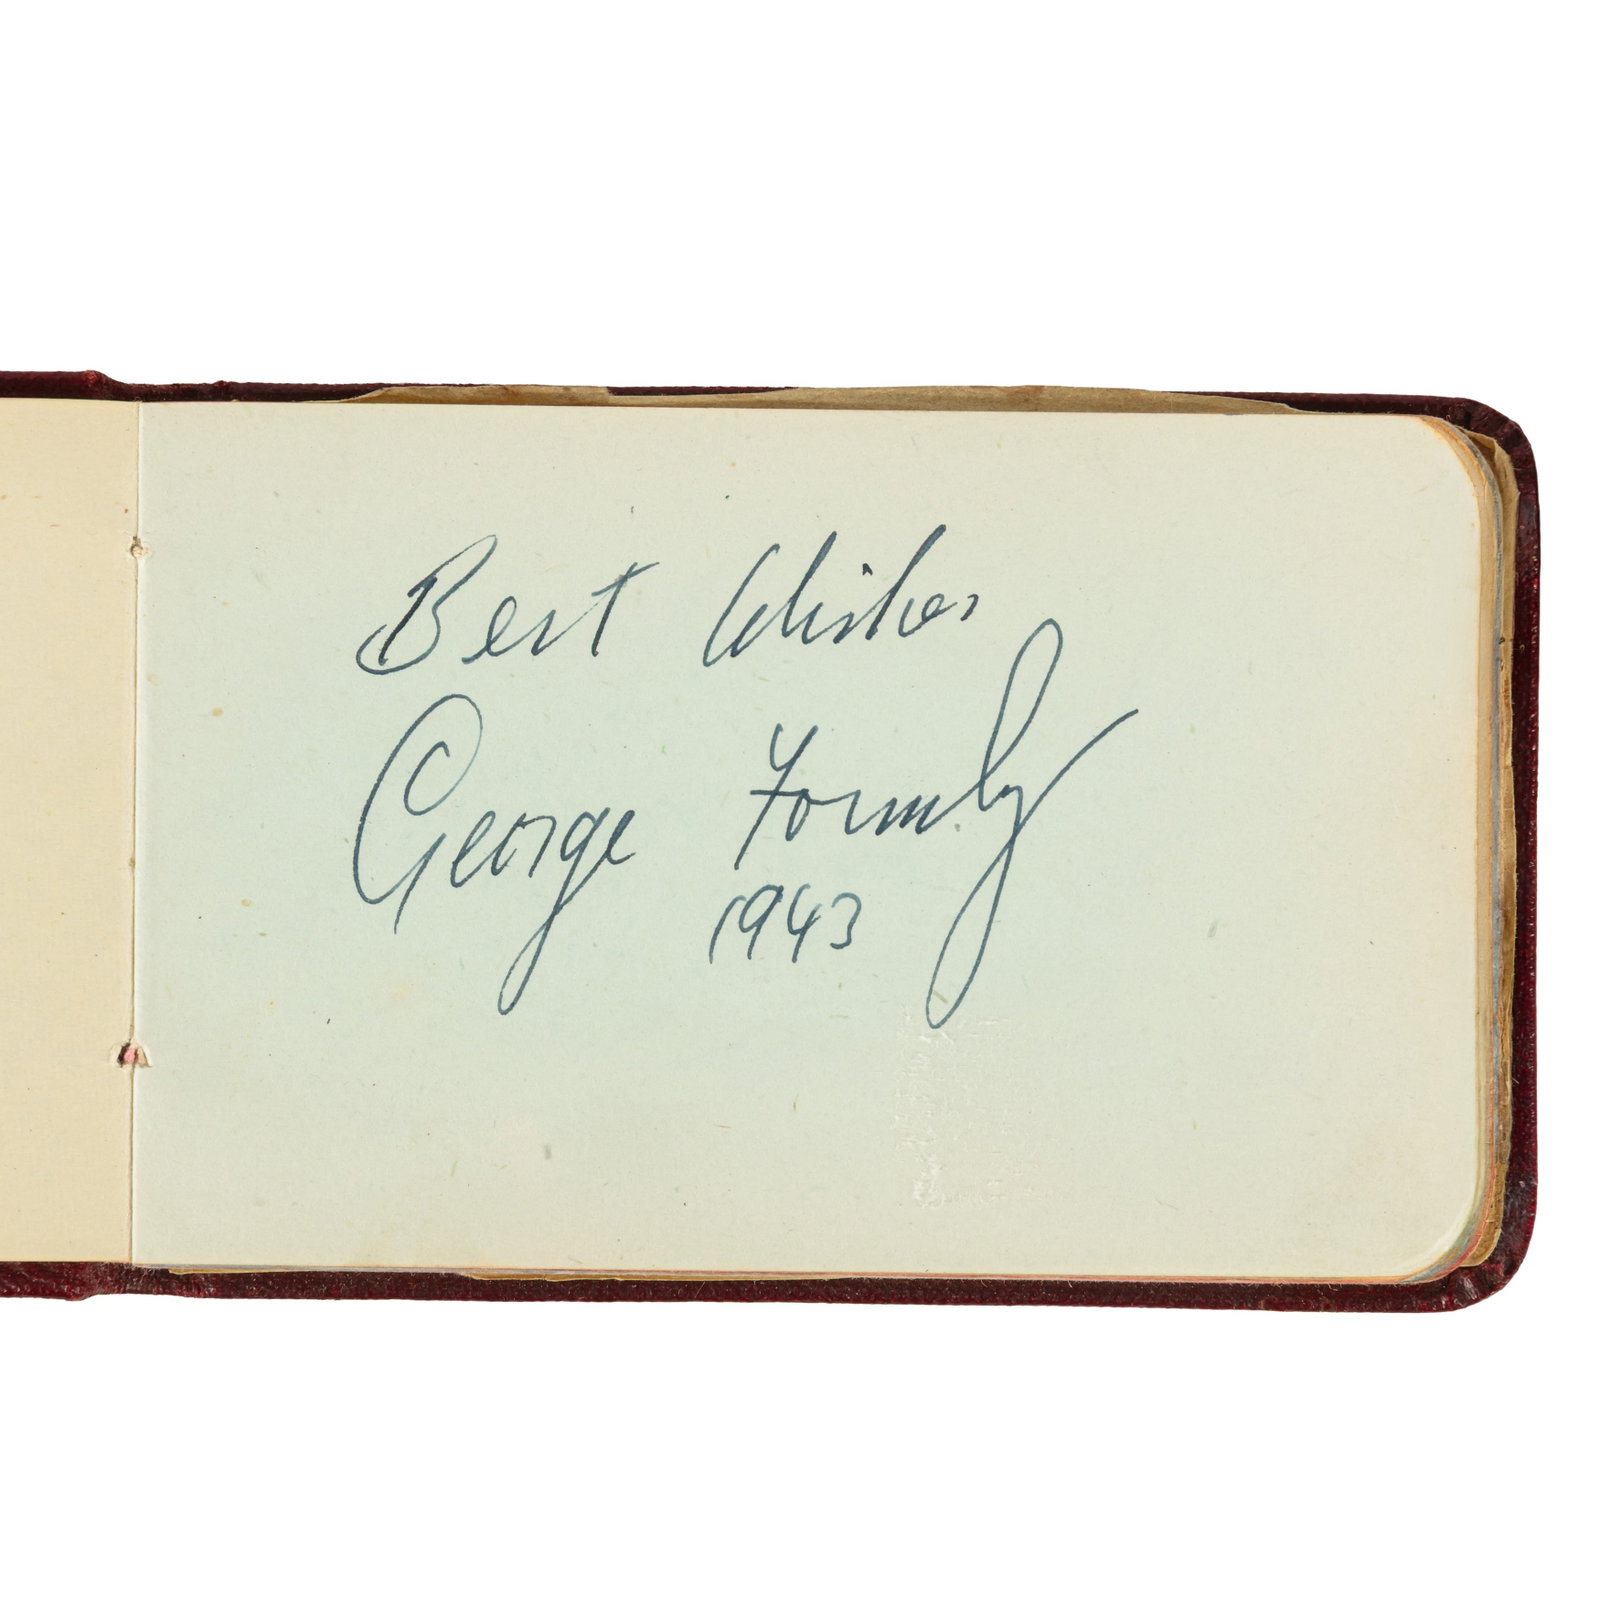 Best Wishes
George Formby
1943